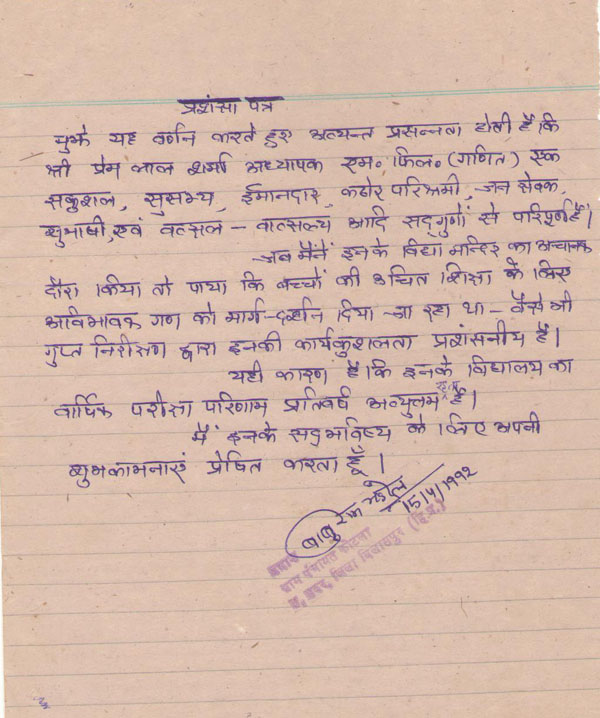 प्रशंसा पत्र
मुझे यह वर्णन करते हुए अत्यन्त प्रसन्नता होती है कि
श्री प्रेम लाल शर्मा अध्यापक एम॰ फिल॰ (गणित) एक
सकुशल, सुसभ्य, ईमानदार, कठोर परिश्रमी, जन सेवक,
शुभाषी, एवं वत्सल – वात्सल्य आदि सद्गुणों से परिपूर्ण हैं।
जब मैंने इनके विद्या मन्दिर का अचानक
दौरा किया तो पाया कि बच्चों की उचित शिक्षा के लिए
अविभावक गण को मार्ग-दर्शन दिया जा रहा था – वैसे भी
गुप्त निरीक्षण द्वारा इनकी कार्यकुशलता प्रशंसनीय है।
यही कारण है कि इनके विद्यालय का
वार्षिक परीक्षा परिणाम प्रतिवर्ष अत्युत्तम रहता है।
मैं इनके सद्भविष्य के लिए अपनी
शुभकामनाएं प्रेषित करता हूँ।
बाबु राम 15/4/1992
प्रधान
ग्राम पंचायत
त. सदर, जिला बिलासपुर (हि.प्र.)